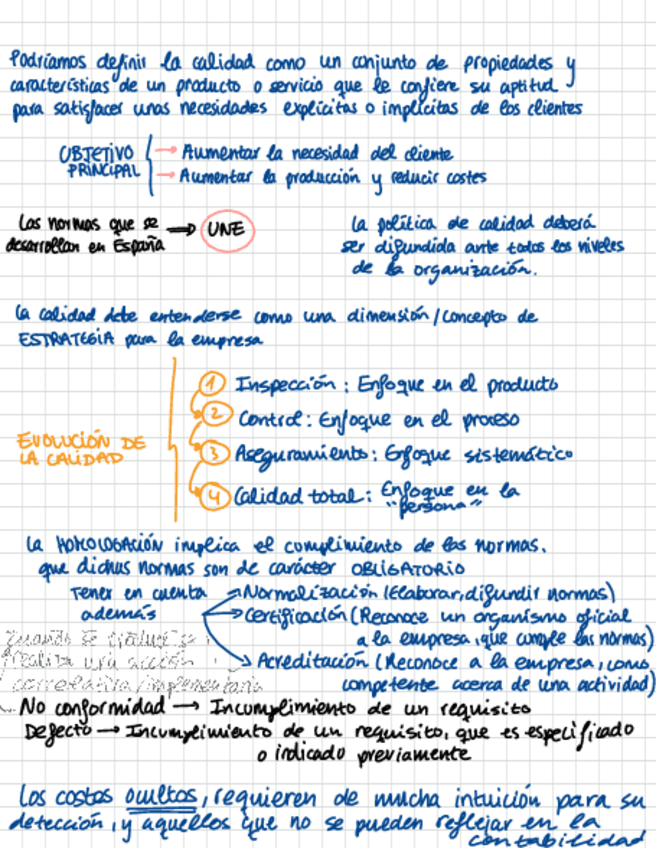 Podríamos definir la calidad como un conjunto de propiedades y
características de un producto o servicio que le confiere su aptitud
para satisfacer unas necesidades explícitas o implícitas de los clientes
OBJETIVO PRINCIPAL
→ Aumentar la necesidad del cliente
→ Aumentar la producción y reducir costes
Las normas que se
desarrollan en España → UNE
La política de calidad deberá
ser difundida ante todos los niveles
de la organización.
La calidad debe entenderse como una dimensión/concepto de
ESTRATEGIA para la empresa
EVOLUCIÓN DE
LA CALIDAD
1 Inspección: Enfoque en el producto
2 Control: Enfoque en el proceso
3 Aseguramiento: Enfoque sistemático
4 Calidad total: Enfoque en la
"persona"
La HOMOLOGACIÓN implica el cumplimiento de las normas.
que dichas normas son de carácter OBLIGATORIO
Tener en cuenta
además
→ Normalización (Elaborar, difundir normas)
→ Certificación (Reconoce un organismo oficial
a la empresa, que cumple las normas)
→ Acreditación (Reconoce a la empresa, como
competente acerca de una actividad)
cuando se produce se
realiza una acción
correctiva/
No conformidad → Incumplimiento de un requisito
Defecto → Incumplimiento de un requisito, que es especificado
o indicado previamente
Los costos ocultos, requieren de mucha intuición para su
detección, y aquellos que no se pueden reflejar en la
contabilidad